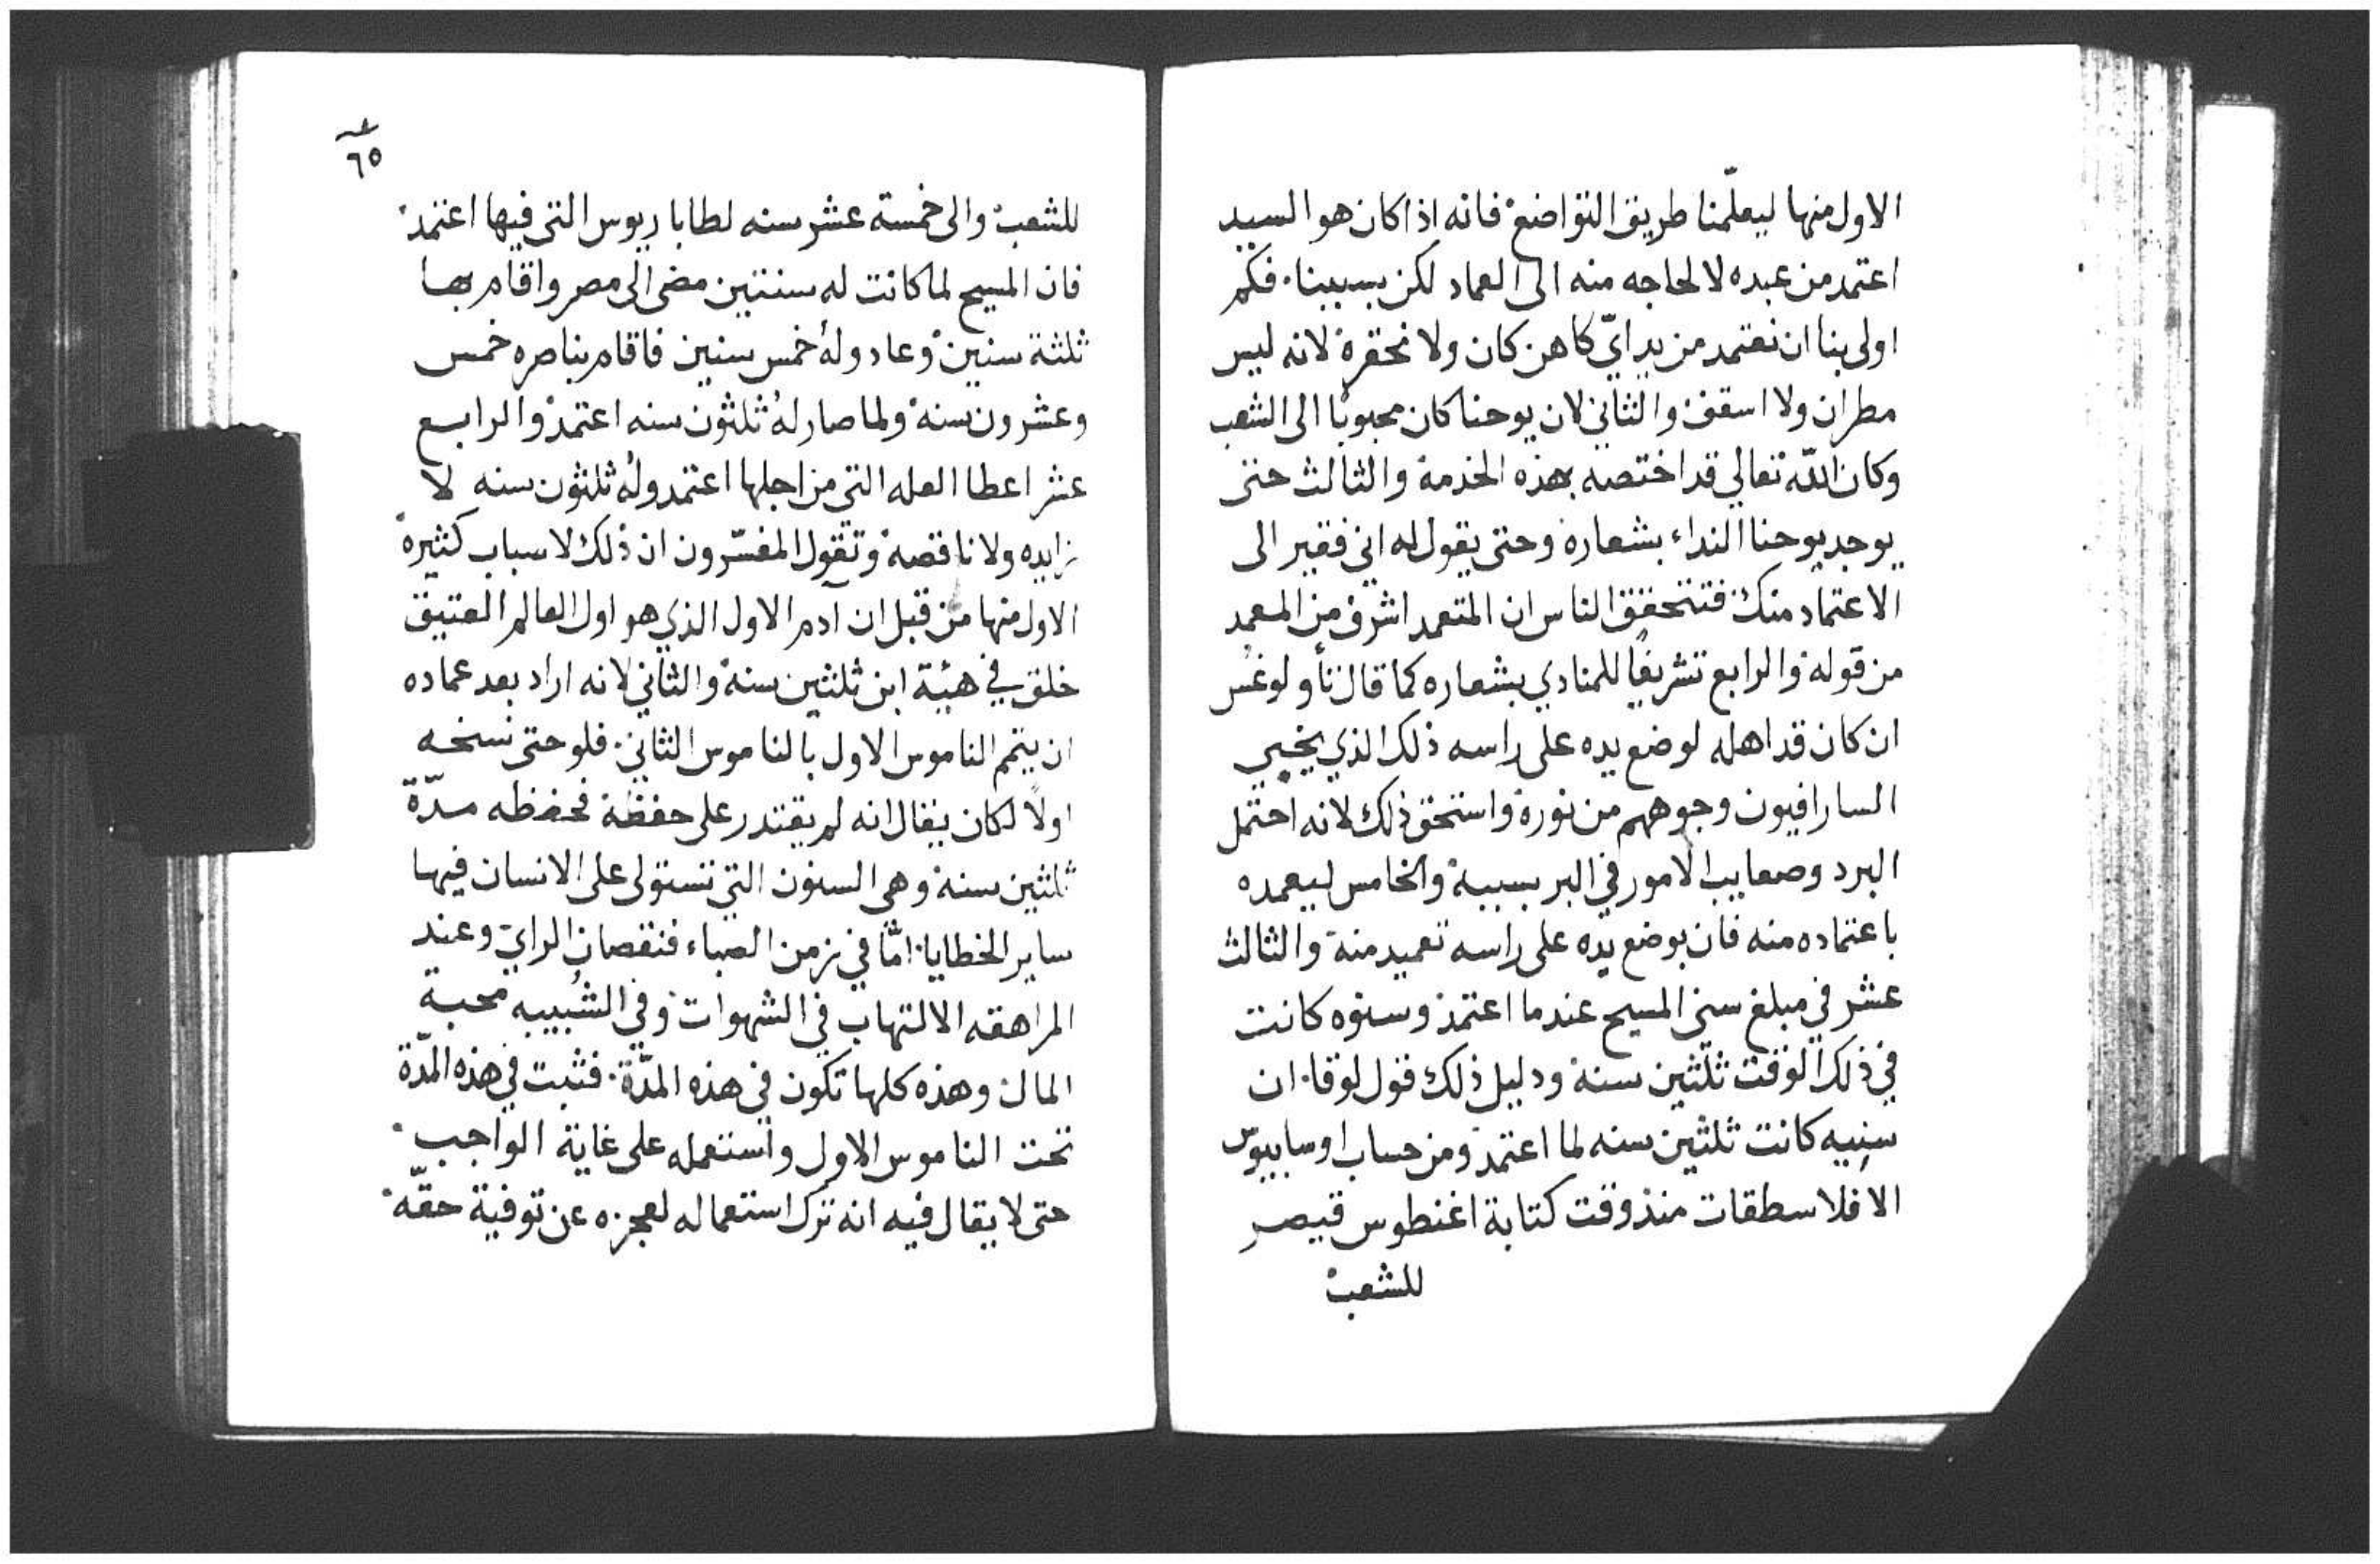 الاول منها ليعلّمنا طريق التواضع فانه اذا كان هو السيد
اعتمد من عبده لا لحاجه منه الى العماد لكن بسببنا. فكم
اولى بنا ان نعتمد من يد ايّ كاهن كان ولا نحقره لانه ليس
مطران ولا اسقف والثاني لان يوحنا كان محبوبًا الى الشعب
وكان اللّه تعالي قد اختصه بهذه الخدمة والثالث حتى
يوجد يوحنا النداء بشعاره وحتى يقول له اني فقير الى
الاعتماد منك فتتحقق الناس ان المتعمد اشرف من المعمد
من قوله والرابع تشريفًا للمنادي بشعاره كما قال ثأولوغس
ان كان قد اهله لوضع يده على راسه ذلك الذي يخبي
السارافيون وجوههم من نوره واستحق ذلك لانه احتمل
البرد وصعايب الامور في البر بسببه والخامس ليعمده
باعتماده منه فان بوضع يده على راسه تعميد منه والثالث
عشر في مبلغ سني المسيح عندما اعتمد وسنوه كانت
في ذلك الوقت ثلثين سنة ودليل ذلك قول لوقا. ان
سنيه كانت ثلثين سنه لما اعتمد ومن حساب اوسابيوس
الافلاسطقات منذ وقت كتابة اغنطوس قيصر
للشعب
٦٥
للشعب والى خمسة عشر سنه لطاباريوس التى فيها اعتمد
فان المسيح لما كانت له سنتين مضى الى مصر واقام بها
ثلثة سنين وعاد وله خمس سنين فاقام بناصره خمس
وعشرون سنة ولما صار له ثلثون سنه اعتمد والرابع
عشر اعطا العله التي من اجلها اعتمد وله ثلثون سنه لا
زايده ولا ناقصة وتقول المفسّرون ان ذلك لاسباب كثيره
الاول منها من قبل ان آدم الاول الذي هو اول العالم العتيق
خلق في هيئة ابن ثلثين سنة والثاني لانه اراد بعد عماده
ان يتمم الناموس الاول بالناموس الثاني. فلو حتى نسخه
اولًا لكان يقال انه لم يقتدر على حفظه فحفظه مدّة
ثلثين سنة وهي السنون التي تستولى على الانسان فيها
ساير الخطايا. امّا في زمن الصباء فنقصان الراي وعند
المراهقه الالتهاب في الشهوات وفي الشبيبه محبة
المال وهذه كلها تكون في هذه المدّة. فثبت في هذه المدّة
تحت الناموس الاول واستعمله على غاية الواجب
حتى لا يقال فيه انه ترك استعماله لعجزه عن توفية حقّه